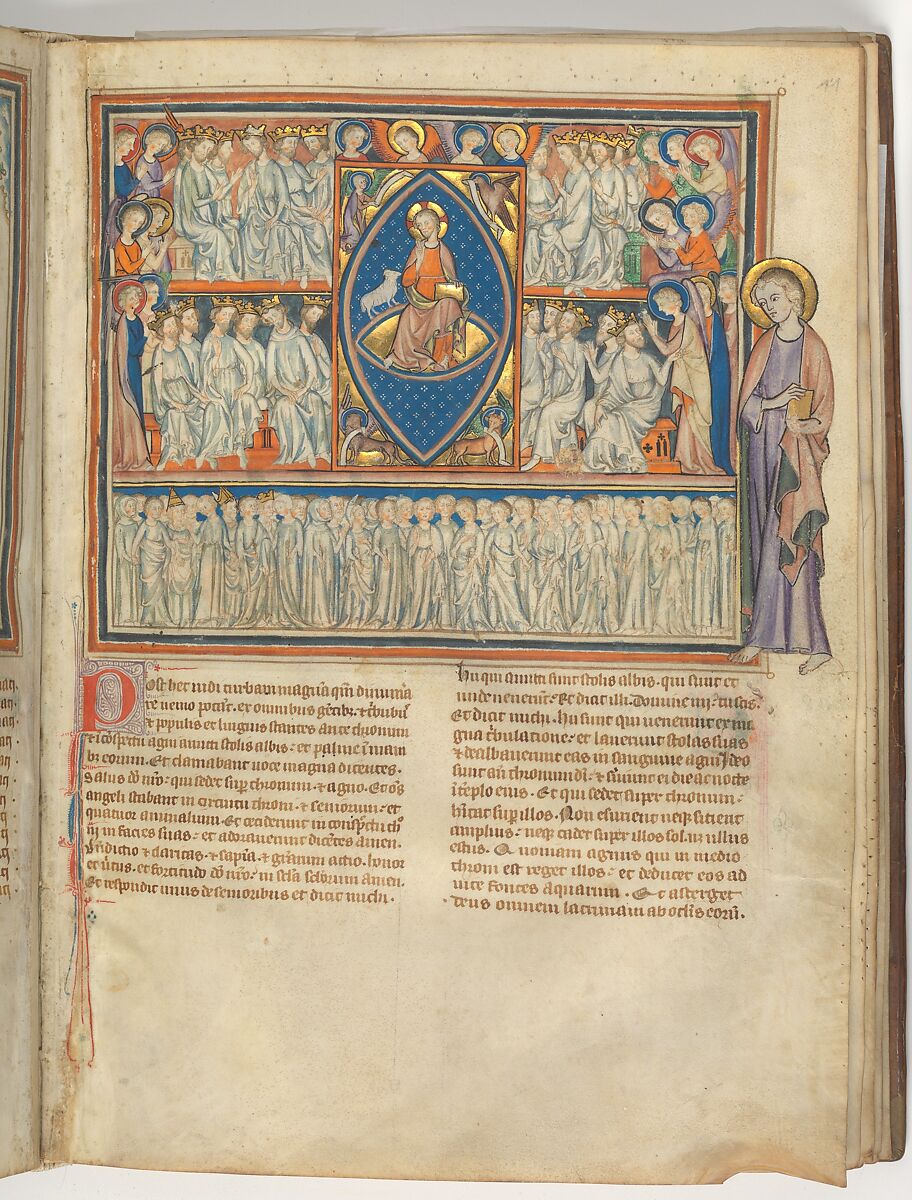 Post hec uidi turbam magnā qm̄ dinumā
re nemo potāt. ex omnibus gētibꝫ ⁊ tͥbubꝫ
⁊ populis et linguis stantes ante thronum
⁊ ī cōspectu agni amicti stolis albis. et palme ī mani
bꝫ eorum. Et clamabant uoce magna dicentes.
Salus dō nr̄o. qui sedet suꝑ thronum. ⁊ agno. Et oēs
angeli stabant in circuitu throni. ⁊ seniorum. et
quatuor animalium. Et ceciderunt in conspc̄tu thͦ
ni in facies suas. et adorauerunt dicētes amen.
Bn̄dictio ⁊ claritas. ⁊ sapīa. ⁊ gr̄arum actio. honor
et uͥtus. et fortitudo dō nr̄o. in sc̄la sc̄lorum amen.
Et respondit unus de senioribus et dicit michi.
Hii qui amicti sunt stolis albis. qui sunt et
unde uenerūt. Et dixi illi. Domine mi tu scis.
Et dixit michi. Hii sunt qui uenerunt ex ma
gna tͥbulatione. et lauerunt stolas suas
⁊ dealbauerunt eas in sanguine agni. Ideo
sunt an̄ thronum dī. ⁊ seruiūt ei die ac nocte
ī templo eius. Et qui sedet super thronum.
hītat suꝑ illos. Non esurient neqꝫ sitient
amplius. neqꝫ cadet suꝑ illos sol. n̄ ullus
estus. Quoniam agnus qui in medio
throni est reget illos. et deducet eos ad
uite fontes aquarum. Et absterget
deus omnem lacrimam ab oclis eorū.